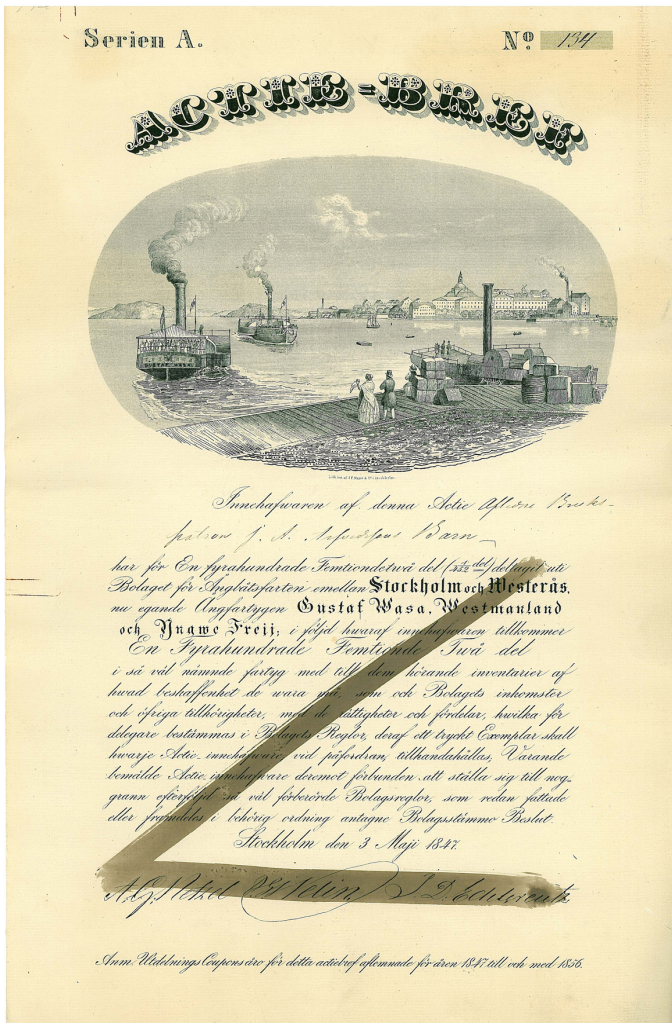 Serien A.
Nº 134
ACTIE=BREF
Innehafwaren af denna Actie Aflidne Bruks-
patron J. A. Barn
har för En fyrahundrade Femtiondetwå del (1/452 del) deltagit uti
Bolaget för Ångbåtsfarten emellan Stockholm och Westerås,
nu egande Ångfartygen Gustaf Wasa, Westmanland
och Yngwe Freij; i följd hwaraf innehafwaren tillkommer
En Fyrahundrade Femtionde Twå del
i så väl nämnde fartyg med till dem hörande inventarier af
hwad beskaffenhet de wara må, som ock Bolagets inkomster
och öfriga tillhörigheter, med de rättigheter och fördelar, hwilka för
delegare bestämmas i Bolagets Reglor, deraf ett tryckt Exemplar skall
hwarje Actie-innehafware vid påfordran, tillhandahållas; Varande
bemälde Actie-innehafware deremot förbunden att ställa sig till nog-
grann efterföljd så väl förberörde Bolagsreglor, som redan fattade
eller framdeles i behörig ordning antagne Bolagsstämmo Beslut.
Stockholm den 3 Maji 1847.
Anm: Utdelnings Coupons äro för detta actiebref aflemnade för åren 1847 till och med 1856.